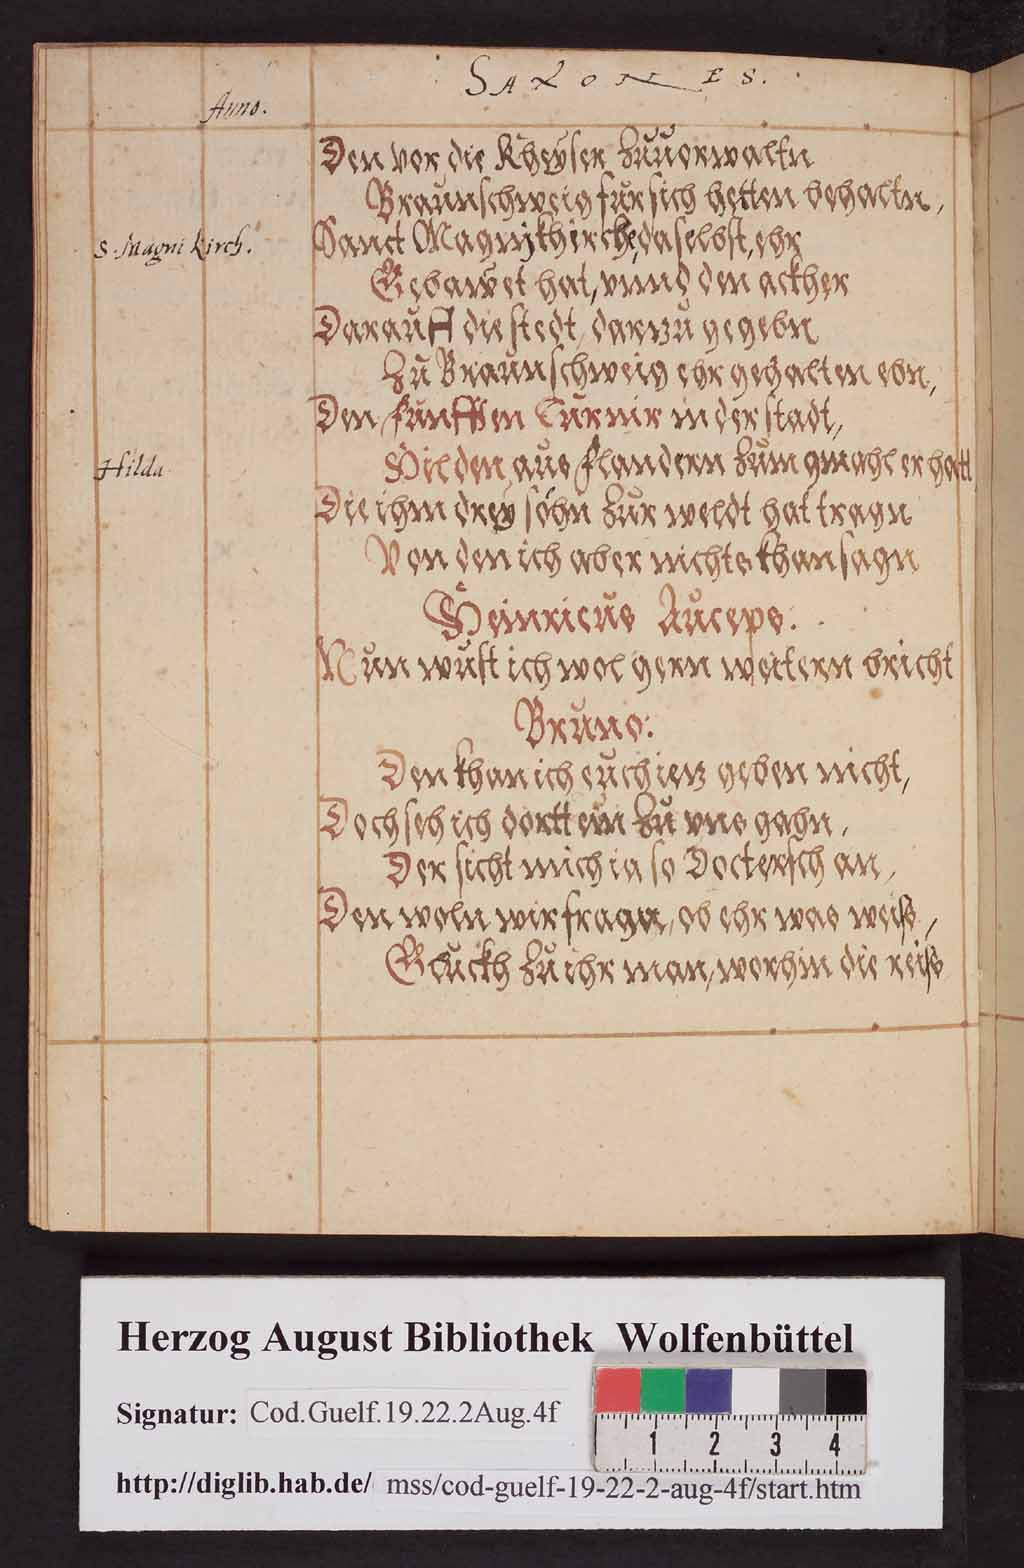 SAXONES.
Anno.
Den vor die Kheyser Zuuorwaltn
Braunschweig für sich hetten behaltn,
S. Magni Kirch.
Sanct Magnÿ kherche, daselbst, ehr
Gebawet hat, vnnd den acker
Darauff die stedt, darzu gegebn
Zu Braunschweig ehr gehalten ebn,
Den funfften Turnir in der stadt,
Hilda
Hilden aus Flandern Zum gmahl er hatt
Die ihm dreÿ söhn Zur weldt hat tragn
Von den ich aber nichts khan sagn
Heinricus Auceps.
Nun wust ich wol gern weitern bricht
Bruno:
Den khan ich euch ietz geben nicht,
Doch seh ich dortt ein Zu vns gahn,
Der sicht mich ia so Doctersch an,
Den woln wir fragn, ob ehr was weiß,
Gluckh Zu ihr man, worhin die reiß
Herzog August Bibliothek Wolfenbüttel
Signatur: Cod.Guelf.19.22.2Aug.4f
1 2 3 4
http://diglib.hab.de/ mss/cod-guelf-19-22-2-aug-4f/start.htm